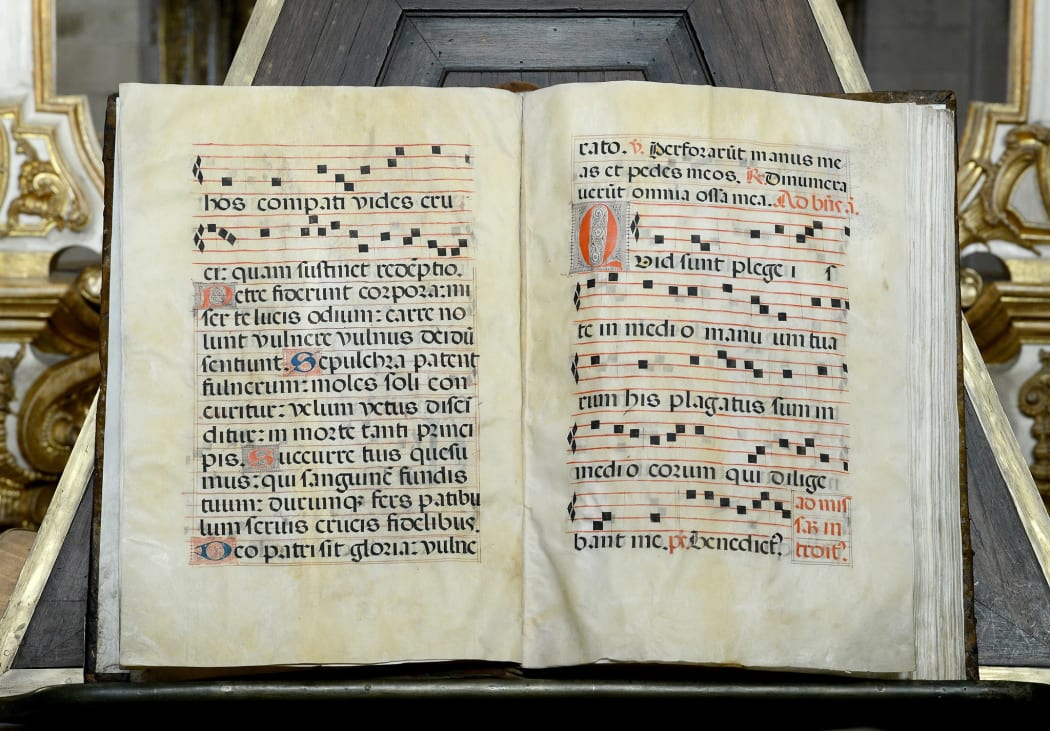 hos compati vides cru
ci: quam sustinet redēptio.
Petre siderunt corpora: mi
ser te lucis odium: carne no
lunt vulnere vulnus derdū
sentiunt. Sepulchra patent
fulnerum: moles soli con
curitur: velum vetus disci
ditur: in morte tanti princi
pis. Succurre tuis quesu
mus: qui sanguinē fundis
tuum: durumq; fers patibu
lum seruis crucis fidelibus.
Deo patri sit gloria: vulne
rato. v. Perforarūt manus me
as et pedes meos. R Dinumera
uerūt omnia ossa mea. Ad bn̄s. a.
Quid sunt plege i s
te in medi o manu um tua
rum his plagatus sum in
medi o eorum qui dilige
bant me. ps. Benedict?
ad mis
saz in
troit?